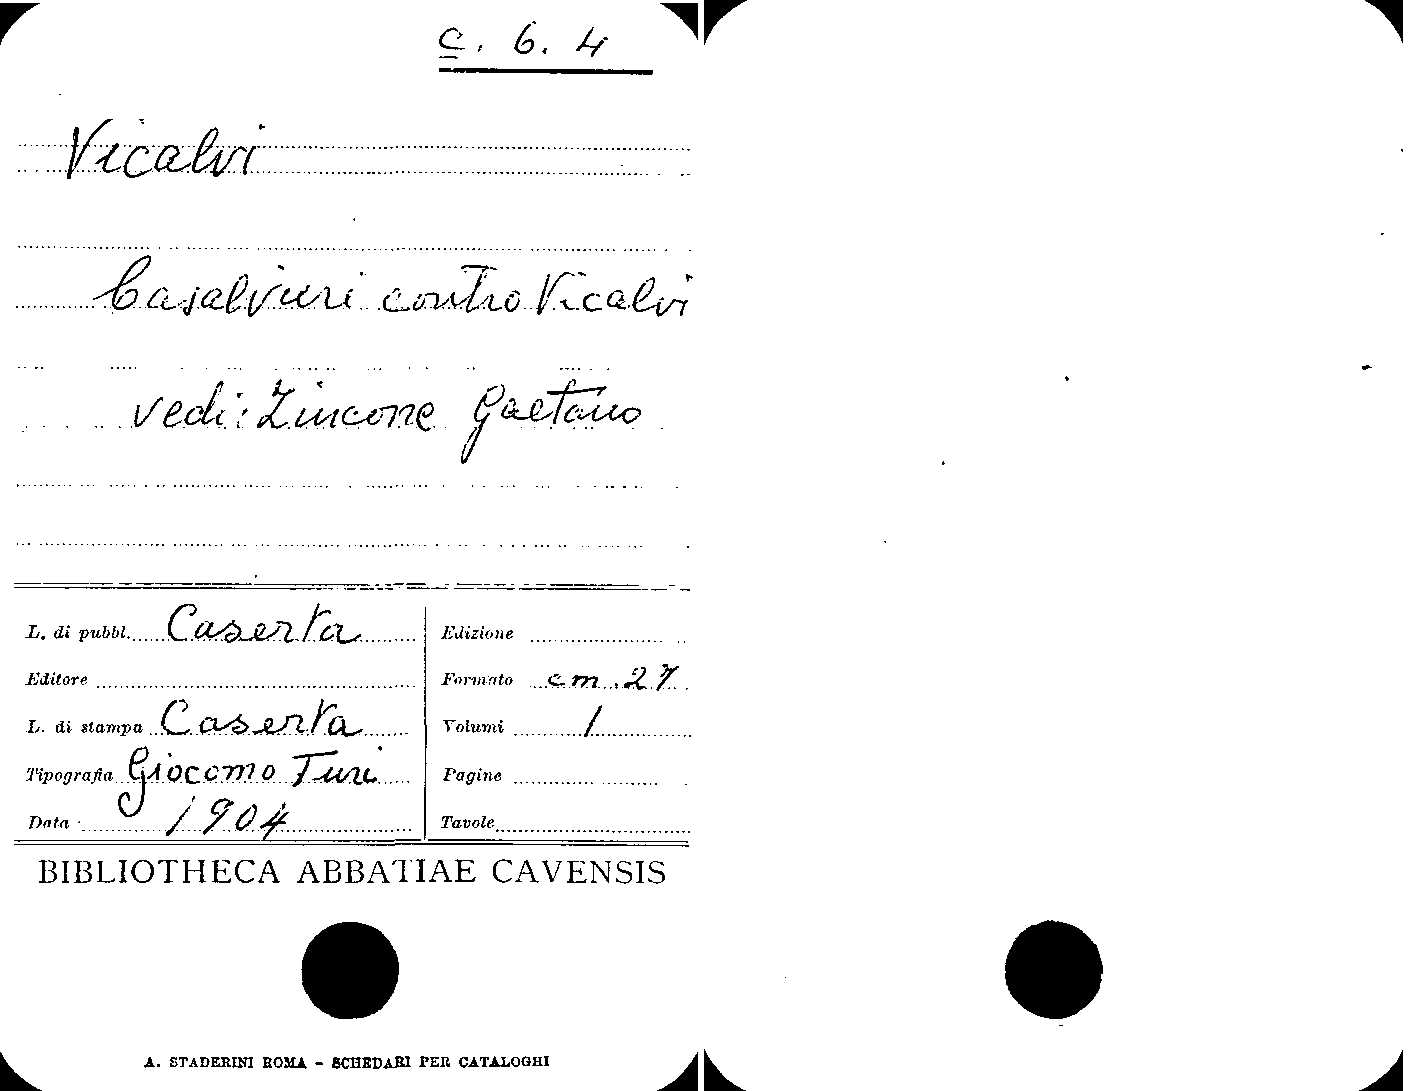 c. 6. 4
Vicalvi
Casalvieri contro Vicalvi
vedi: Zincone Gaetano
L. di pubbl. Caserta
Editore
L. di stampa Caserta
Tipografia Giocomo Turi
Data 1904
Edizione
Formato cm. 27
Volumi 1
Pagine
Tavole
BIBLIOTHECA ABBATIAE CAVENSIS
A. STADERINI ROMA - SCHEDARI PER CATALOGHI